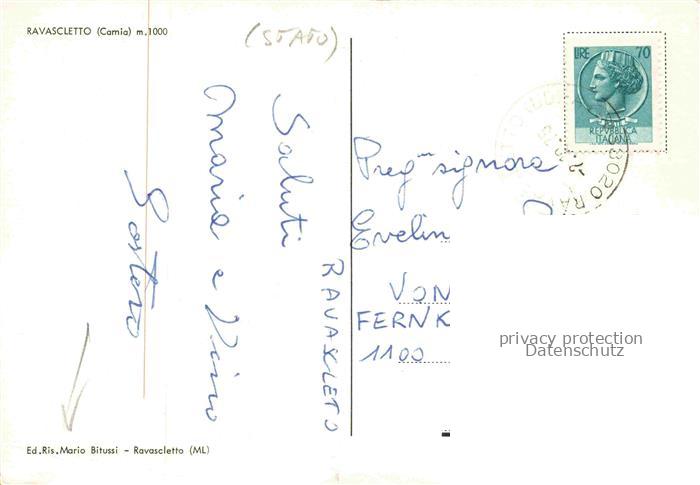 RAVASCLETTO (Carnia) m.1000
(STATO)
Saluti
RAVAXLETO
Maria e Pino
Sostero
LIRE 70
REPUBBLICA
ITALIANA
33020 RAV
Preg.ma signora
Evelin
VON
FERNK
1100
privacy protection
Datenschutz
Ed.Ris.Mario Bitussi - Ravascletto (ML)